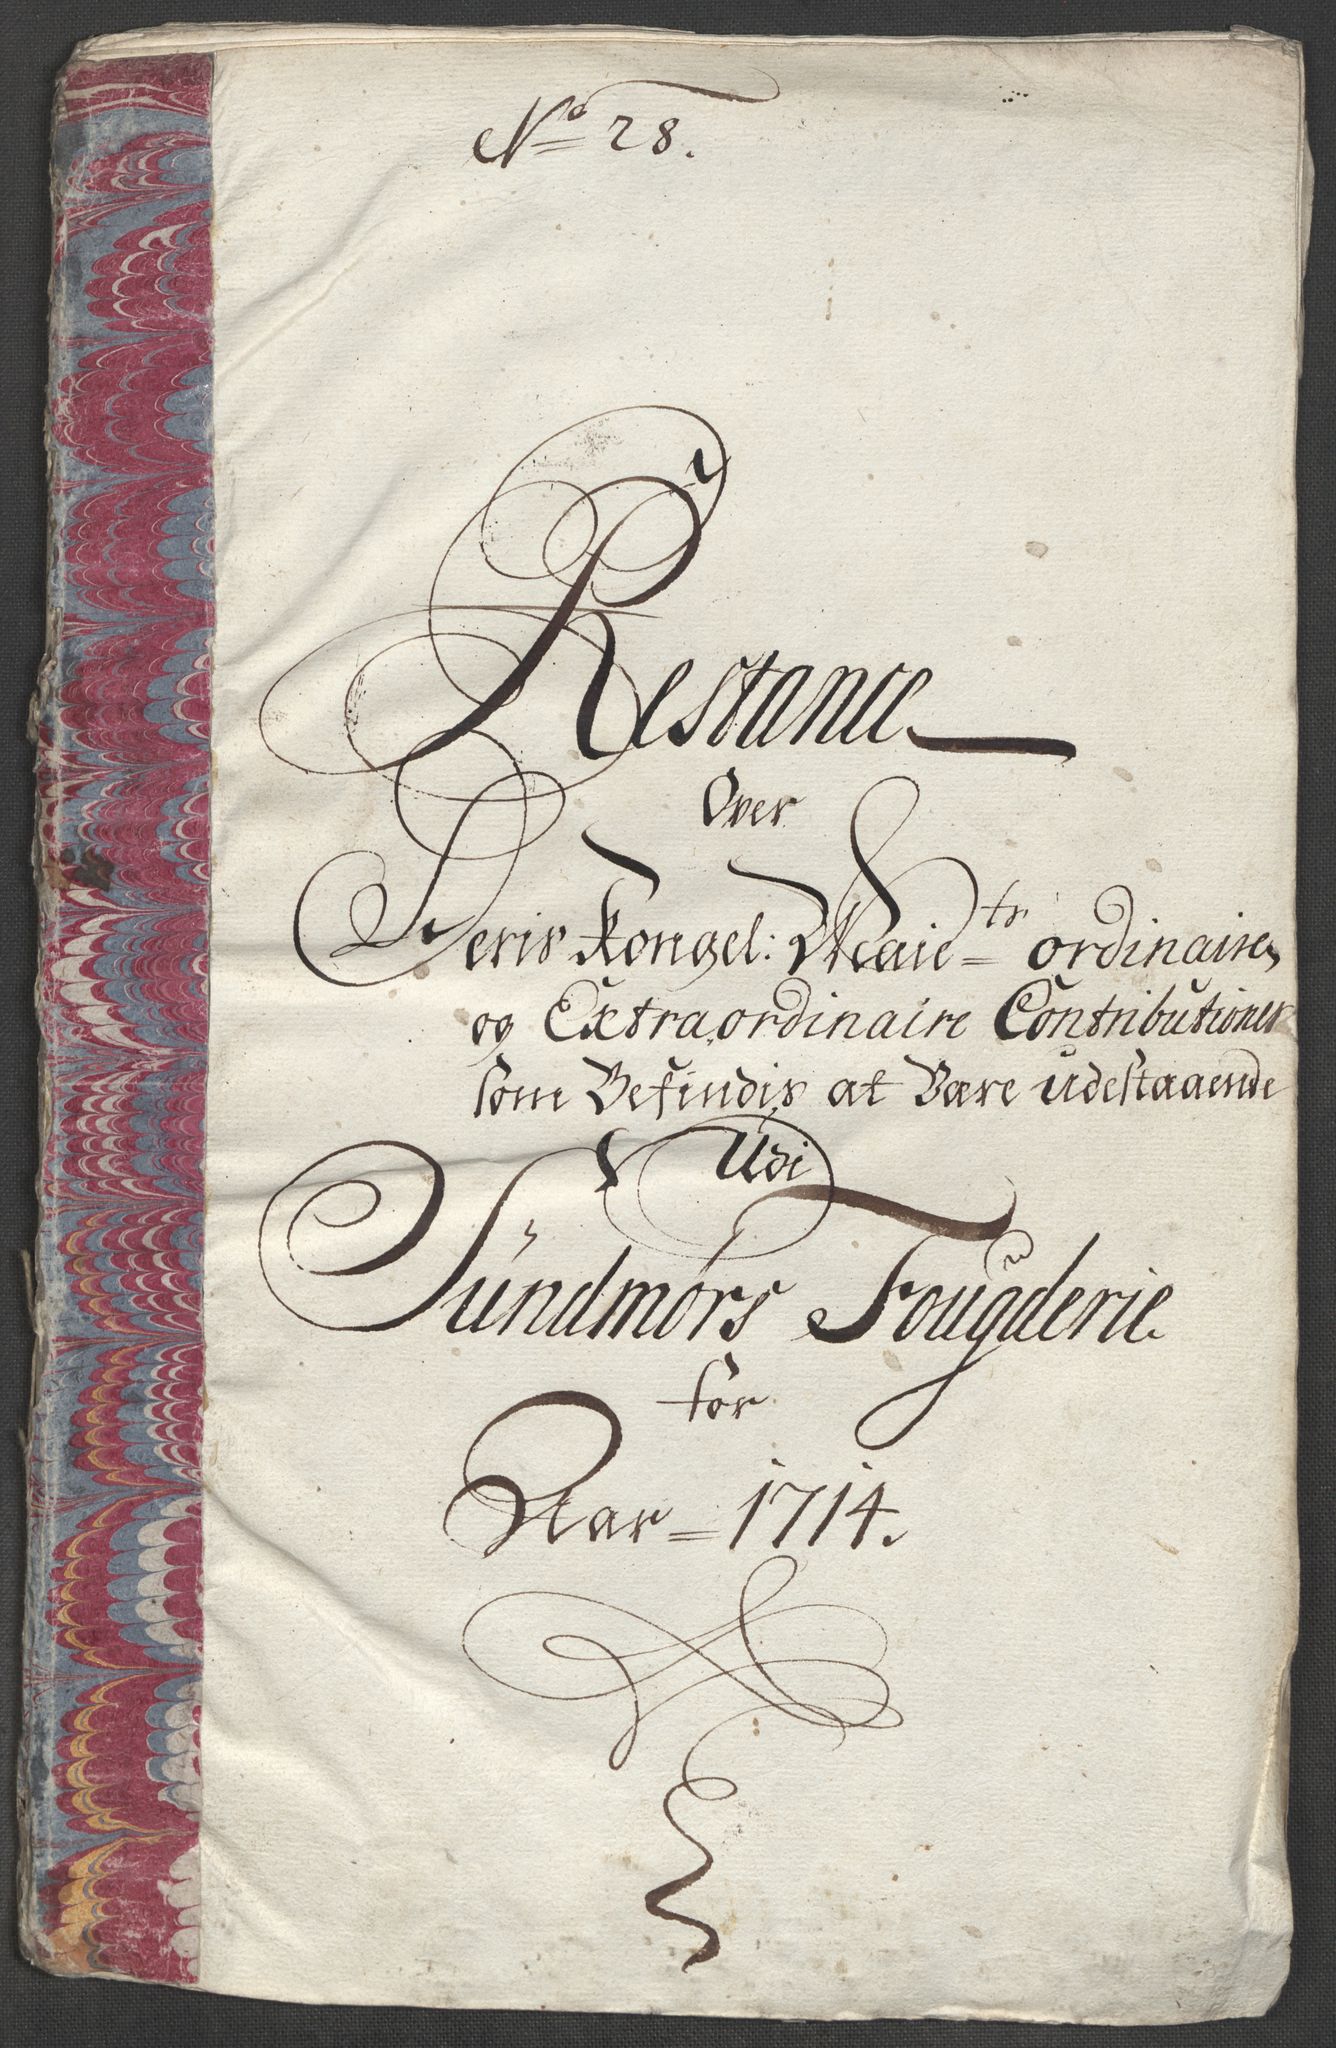 No 28.
Restance
Over
Deris Kongel: Maiets ordinaire,
og Extraordinaire Contributioner
som Befindis at Være udestaaende
Udi
Sundmørs Fougderie
for
Aar 1714.